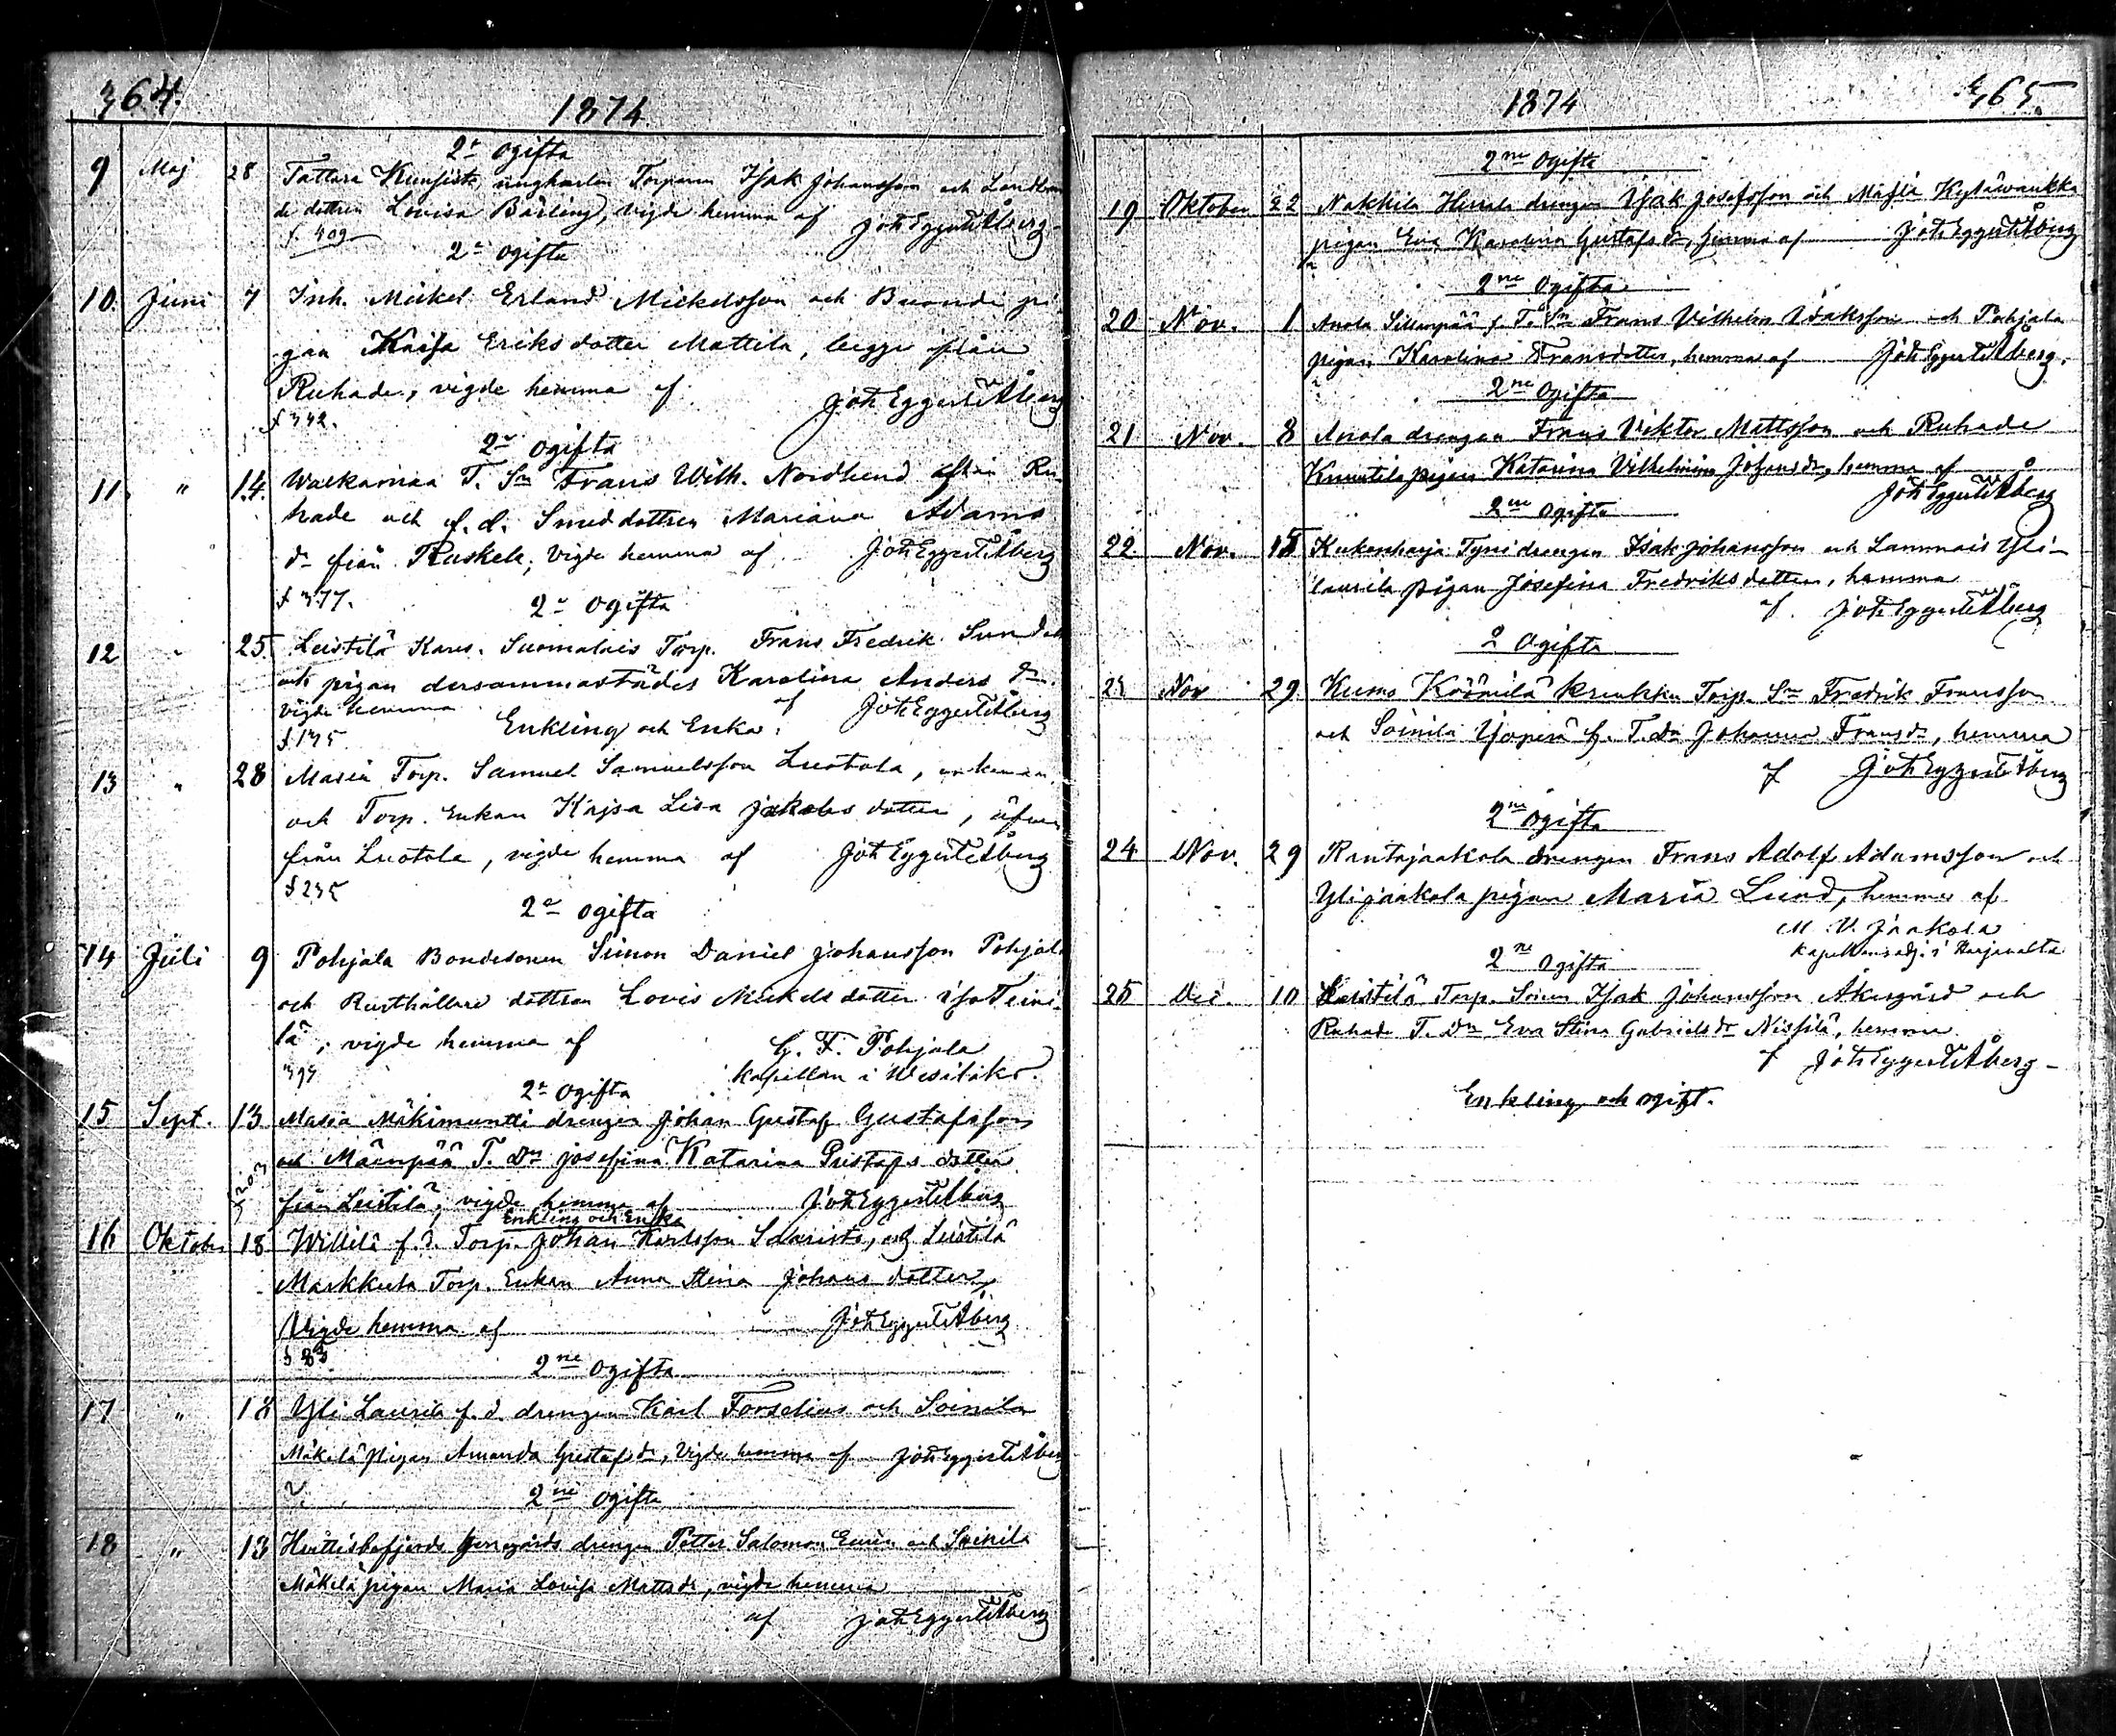 364.
1874.
2ne ogifta
9 Maj 28 Tattara Kunsisto, ungkarlen Torparen Isak Johansson och Landbon
de dottren Lovisa Bärling, vigde hemma af Joh Eggert Åberg
f. 409
2ne ogifta
10. Juni 7 Inh. Mickel Erland Mickelsson och Buonde pi
gan Kaisa Eriksdotter Mattila, begge från
Ruhade, vigde hemma af Joh Eggert Åberg
f 342.
2ne ogifta
11. " 14. Walkamaa T. Sn Frans Wilh. Nordlund ifrån Ru
hade och f.d. Smeddottren Mariana Adams
dr från Raskele, Vigde hemma af Joh Eggert Åberg
f 377.
2ne ogifta
12 " 25. Leistilä Karu. Suomalais Torp. Frans Fredrik
och pigan dersammastädes Karolina Anders dr
vigde hemma af Joh Eggert Åberg
f 135
Enkling och Enka.
13 " 28 Masia Torp. Samuel Samuelsson Luotola, enkeman
och Torp. Enkan Kajsa Lisa Jakobs dotter, äfven
från Luotola, vigde hemma af Joh Eggert Åberg
f 235
2ne ogifta
14 Juli 9 Pohjala Bondesonen Simon Daniel Johansson Pohjala
och Rusthållare dottren Lovis Mickels dotter iso Teini
lä, vigde hemma af G. F. Pohjala
393 Kapellan i Wesilaks.
2ne ogifta
15 Sept. 13 Masia Mäkimuntti drengen Johan Gustaf Gustafsson
och Mäenpää T. Dn Josefina Katarina Gustafs dotter
f 203
från Leistilä, vigde hemma af Joh Eggert Åberg
Enkling och Enka
16 Oktober 18 Willilä f.d. Torp. Johan Karlsson Salaristo, och Leistilä
Markkula Torp. Enkan Anna Stina Johans dotter,
Vigde hemma af Joh Eggert Åberg
f 83
2ne ogifta
17 " 18 Yli Laurila f.d. drengen Karl Forselius och Soinila
Mäkelä pigan Amanda Gustafs dr, Vigde hemma af Joh Eggert Åberg
2ne ogifta
18 " 13 Huittisbofjerds drengen Petter Salomon Eurén och Soinila
Mäkelä pigan Maria Lovisa Matts dr, vigde hemma
af Joh Eggert Åberg
365.
1874
2ne Ogifta
19 Oktober 22 Nakkila Hierala drengen Isak Josefsson och Masia Kyläwankka
pigan Eva Karolina Gustafs dr, hemma af Joh Eggert Åberg
2ne Ogifta
20 Nov. 1 Anola Sillanpää f. T. Sn Frans Vilhelm Isaksson och Pohjala
pigan Karolina Fransdotter, hemma af Joh Eggert Åberg.
2ne Ogifta
21 Nov. 8 Anola drengen Frans Viktor Mattsson och Ruhade
Knuutila pigan Katarina Vilhelmina Johans dr, hemma af
Joh Eggert Åberg
2ne ogifta
22 Nov. 15 Kukonharja Tyni drengen Isak Johansson och Lammais Yli-
laurila pigan Josefina Fredriks dotter, hemma
af Joh Eggert Åberg
2 Ogifta
23 Nov 29 Kumo Köömilä Krenkku Torp. Sn Fredrik Fransson
och Soinila Yjoperä f. T. Dn Johanna Frans dr, hemma
af Joh Eggert Åberg
2ne ogifta
24 Nov. 29 Rantajaakola drengen Frans Adolf Adamsson och
Ylijaakola pigan Maria Lund, hemma af
M. V. Jaakola
Kapellansadj. i Harjavalta
2ne Ogifta
25 Dec. 10 Leistilä Torp. Sonen Isak Johansson Åkergård och
Ruhade T. Dn Eva Stina Gabriels dr Nissilä, hemma
af Joh Eggert Åberg
Enkling och ogift.